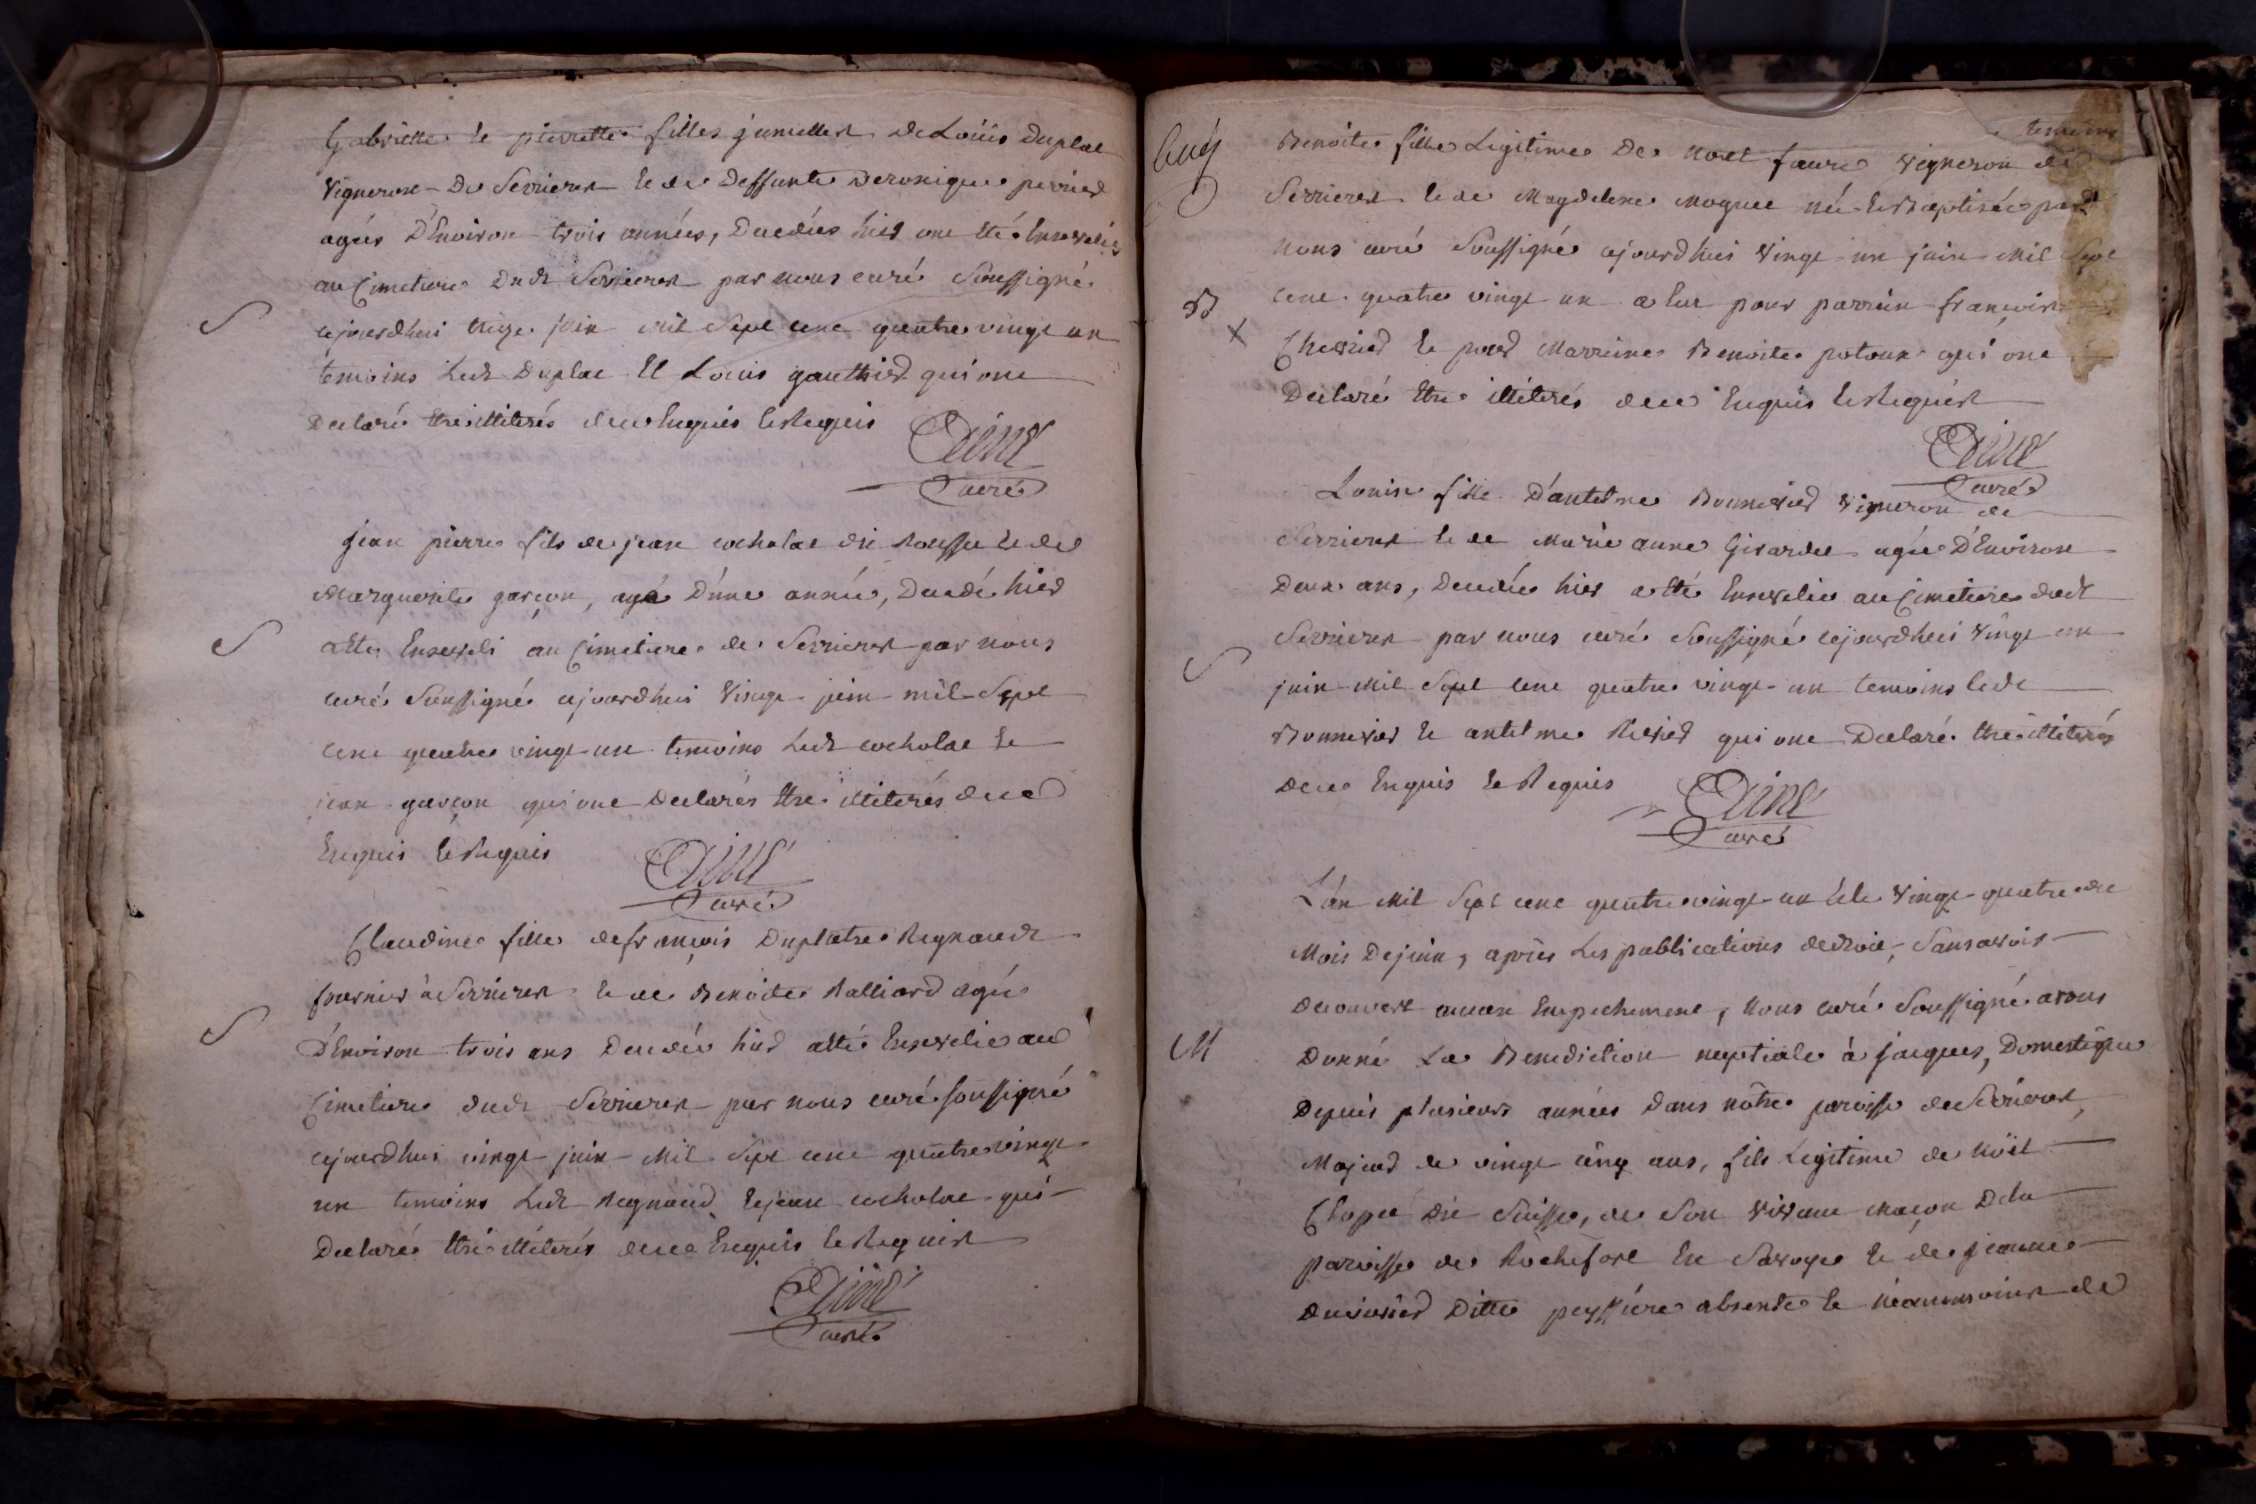 Gabrielle et pierrette filles jumelles de Loüis Duplat
Vigneron De Serrieres et de Deffunte veronique perrier
agées D'Environ trois années, Decedées hier ont été Ensevelies
au Cimetiere Dudt Serrieres par nous curé Soussigné
S
cejourdhui treize juin mil Sept cent quatre vingt un
temoins Ledt Duplat Et Louis gauthier qui ont
Declaré être illiterés de ce Enquis et Requis
curé
jean pierre fils de jean cocholat dit Rousset et de
Marguerite garçon, agé D'une année, Decedé hier
S
a été Enseveli au Cimetiere de Serrieres par nous
curé Soussigné cejourdhui Vingt juin mil Sept
cent quatre vingt un temoins Ledt cocholat et
jean garçon qui ont Declarés être illiterés de ce
Enquis et Requis
curé
Claudine fille de françois Duplatre Regnaudt
fournier à Serrieres et de Benoite Ralliard agée
S
D'Environ trois ans Decedée hier a été Ensevelie au
Cimetiere dudt Serrieres par nous curé soussigné
cejourdhui vingt juin Mil Sept cent quatre vingt
un temoins Ledt Regnaud et jean cocholat qui
Declarés être illiterés de ce Enquis et Requis
curé
temoins
Benoite fille Legitime De Noel faure Vigneron de
Serrieres et de Magdelene née et Baptisée par
Nous curé Soussigné cejourdhui Vingt un juin Mil Sept
B
cent quatre vingt un a Eut pour parrain françois
X
Chevrier et pour Marreine Benoite qui ont
Declaré Etre illiterés de ce Enquis et Requis
curé
Louise fille D'antelme Bonnevier Vigneron de
Serrieres et de Marie anne Girardet agée D'Environ
Deux ans, Decedée hier a été Ensevelie au Cimetiere dudt
Serrieres par nous curé Soussigné cejourdhui Vingt un
S
juin Mil Sept cent quatre vingt un temoins ledt
Bonnevier et antelme qui ont Declaré être illiterés
De ce Enquis et Requis
curé
L'an Mil Sept cent quatre vingt un et le Vingt quatre du
Mois De juin, aprés Les publications de droit, Sans avoir
Decouvert aucun Empechement, Nous curé Soussigné avons
M
Donné La Benediction nuptiale à jacques, Domestique
Depuis plusieurs années Dans nôtre paroisse de Serrieres,
Majeur de vingt cinq ans, fils Legitime de Noël
Clopet dit Suisse, de Son Vivant Maçon De la
paroisse de Rochefort En Savoye et de jeanne
Ditte absente et néanmoins de